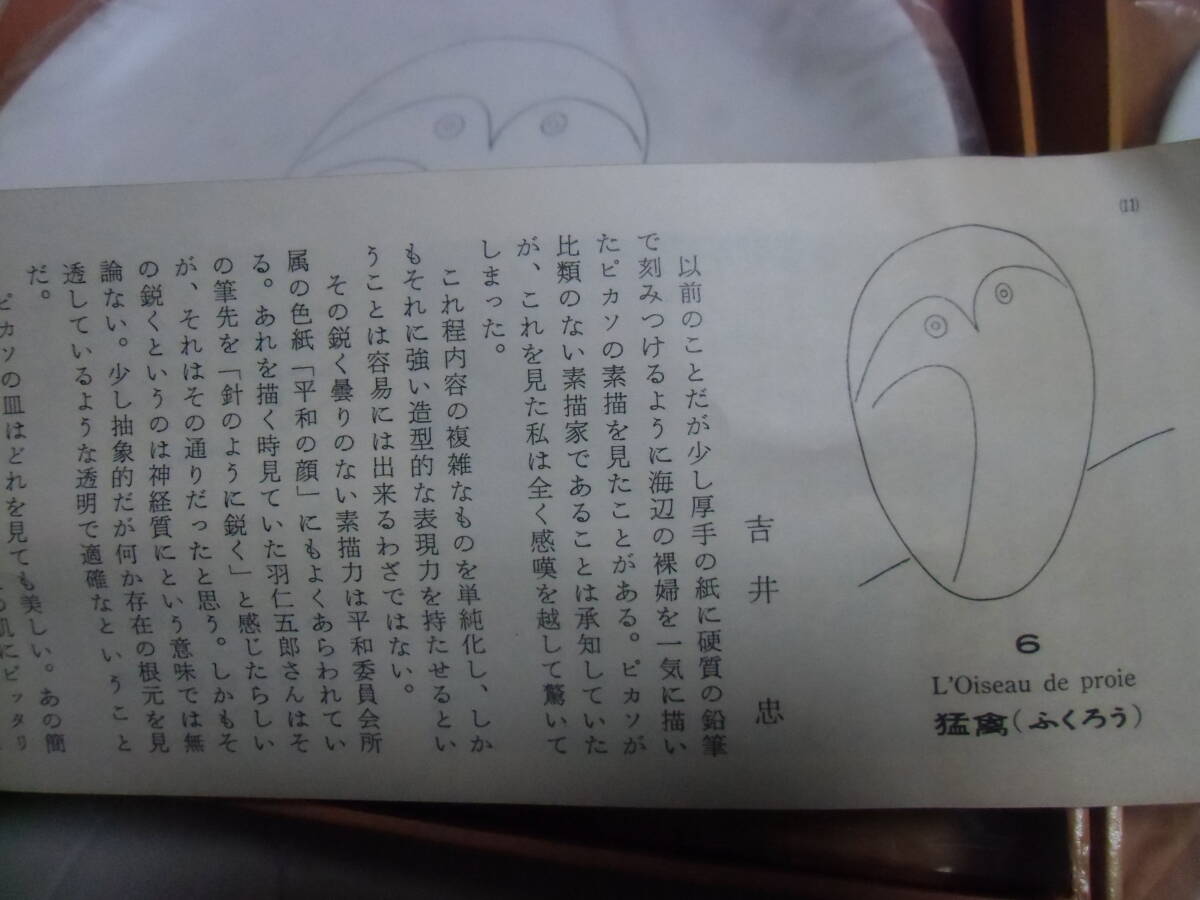 (11)
6
L'Oiseau de proie
猛禽(ふくろう)
吉井 忠
以前のことだが少し厚手の紙に硬質の鉛筆
で刻みつけるように海辺の裸婦を一気に描い
たピカソの素描を見たことがある。ピカソが
比類のない素描家であることは承知していた
が、これを見た私は全く感嘆を越して驚いて
しまった。
これ程内容の複雑なものを単純化し、しか
もそれに強い造型的な表現力を持たせるとい
うことは容易には出来るわざではない。
その鋭く曇りのない素描力は平和委員会所
属の色紙「平和の顔」にもよくあらわれてい
る。あれを描く時見ていた羽仁五郎さんはそ
の筆先を「針のように鋭く」と感じたらしい
が、それはその通りだったと思う。しかもそ
の鋭くというのは神経質にという意味では無
論ない。少し抽象的だが何か存在の根元を見
透しているような透明で適確なということ
だ。
ピカソの皿はどれを見ても美しい。あの簡
肌にピッタリ